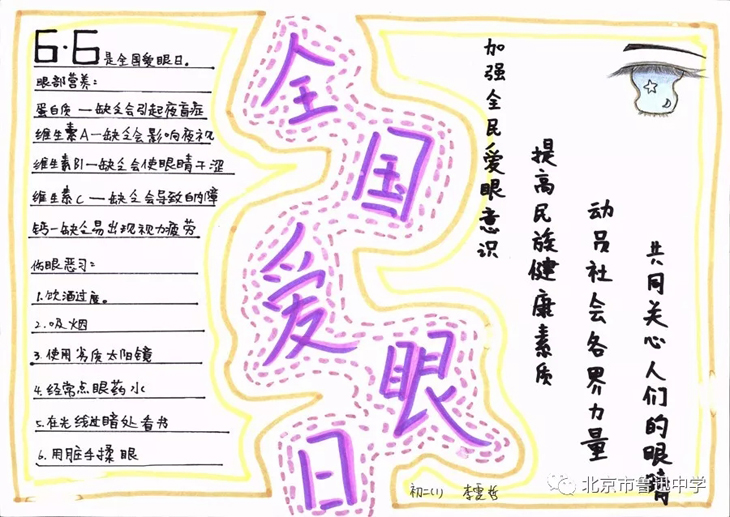 6·6是全国爱眼日。
眼部营养：
蛋白质—缺乏会引起疲盲症
维生素A—缺乏会影响夜视
维生素B1—缺乏会使眼睛干涩
维生素C—缺乏会导致白内障
钙—缺乏易出现视力疲劳
伤眼恶习：
1.饮酒过度。
2.吸烟
3.使用劣质太阳镜
4.经常点眼药水
5.在光线过暗处看书
6.用脏手揉眼
全国爱眼日
加强全民爱眼意识
提高民族健康素质
动员社会各界力量
共同关心人们的眼睛
初二(1)
北京市鲁迅中学